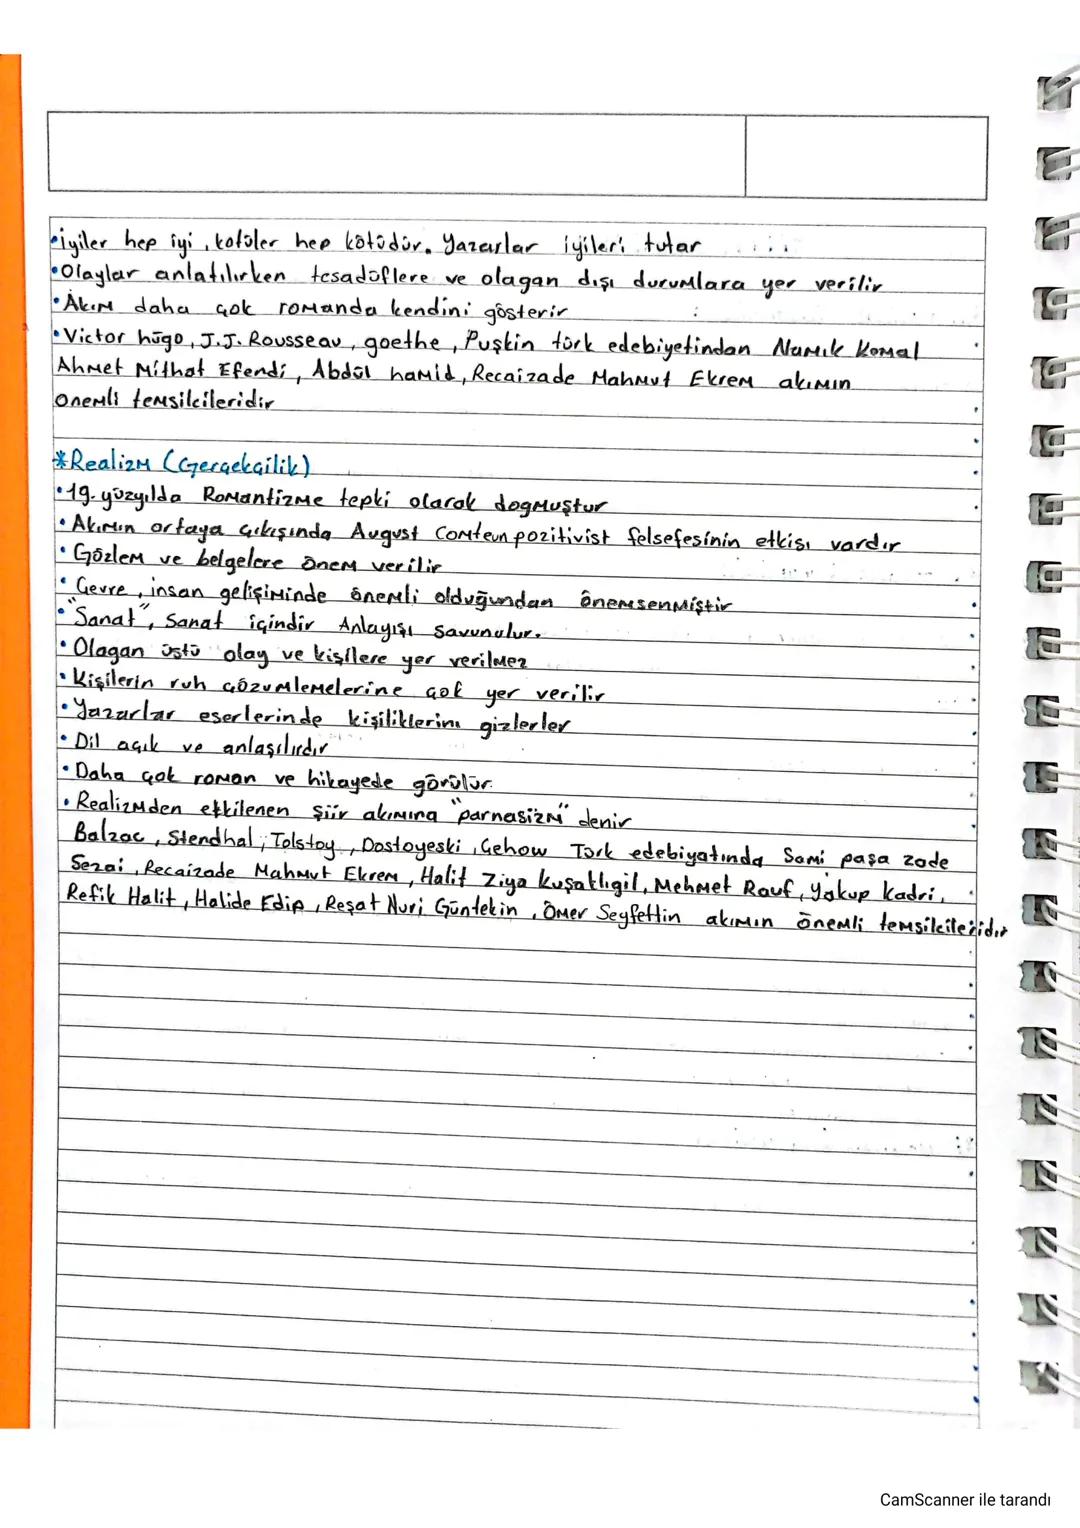 •iyiler hep iyi, kötüler hep kötüdür. Yazarlar iyileri tutar
•Olaylar anlatılırken tesadüflere ve olagan dışı durumlara yer verilir
•Akım daha çok romanda kendini gösterir
•Victor hügo, J.J. Rousseau, goethe, Puşkin türk edebiyetindan Namık Kemal
Ahmet Mithat Efendi, Abdül hamid, Recaizade Mahmut Ekrem akımın
önemli temsilcileridir
*Realizm (Gerçekçilik)
•19. yüzyılda Romantizme tepki olarak dogmuştur
•Akımın ortaya çıkışında August Comteun pozitivist felsefesinin etkisi vardır
•Gözlem ve belgelere önem verilir
•Çevre, insan gelişiminde önemli olduğundan önemsenmiştir
•"Sanat", Sanat içindir Anlayışı savunulur.
•Olagan üstü olay ve kişilere yer verilmez
•Kişilerin ruh çözümlemelerine çok yer verilir
•Yazarlar eserlerinde kişiliklerini gizlerler
•Dil açık ve anlaşılırdır
•Daha çok roman ve hikayede görülür.
•Realizmden etkilenen şiir akımına "parnasizm" denir
Balzac, Stendhal, Tolstoy, Dostoyeski, Çehow Türk edebiyatında Sami paşa zade
Sezai, Recaizade Mahmut Ekrem, Halit Ziya Kuşaklıgil, Mehmet Rauf, Yakup Kadri,
Refik Halit, Halide Edip, Reşat Nuri Güntekin, Ömer Seyfettin akımın önemli temsilcileridir
CamScanner ile tarandı